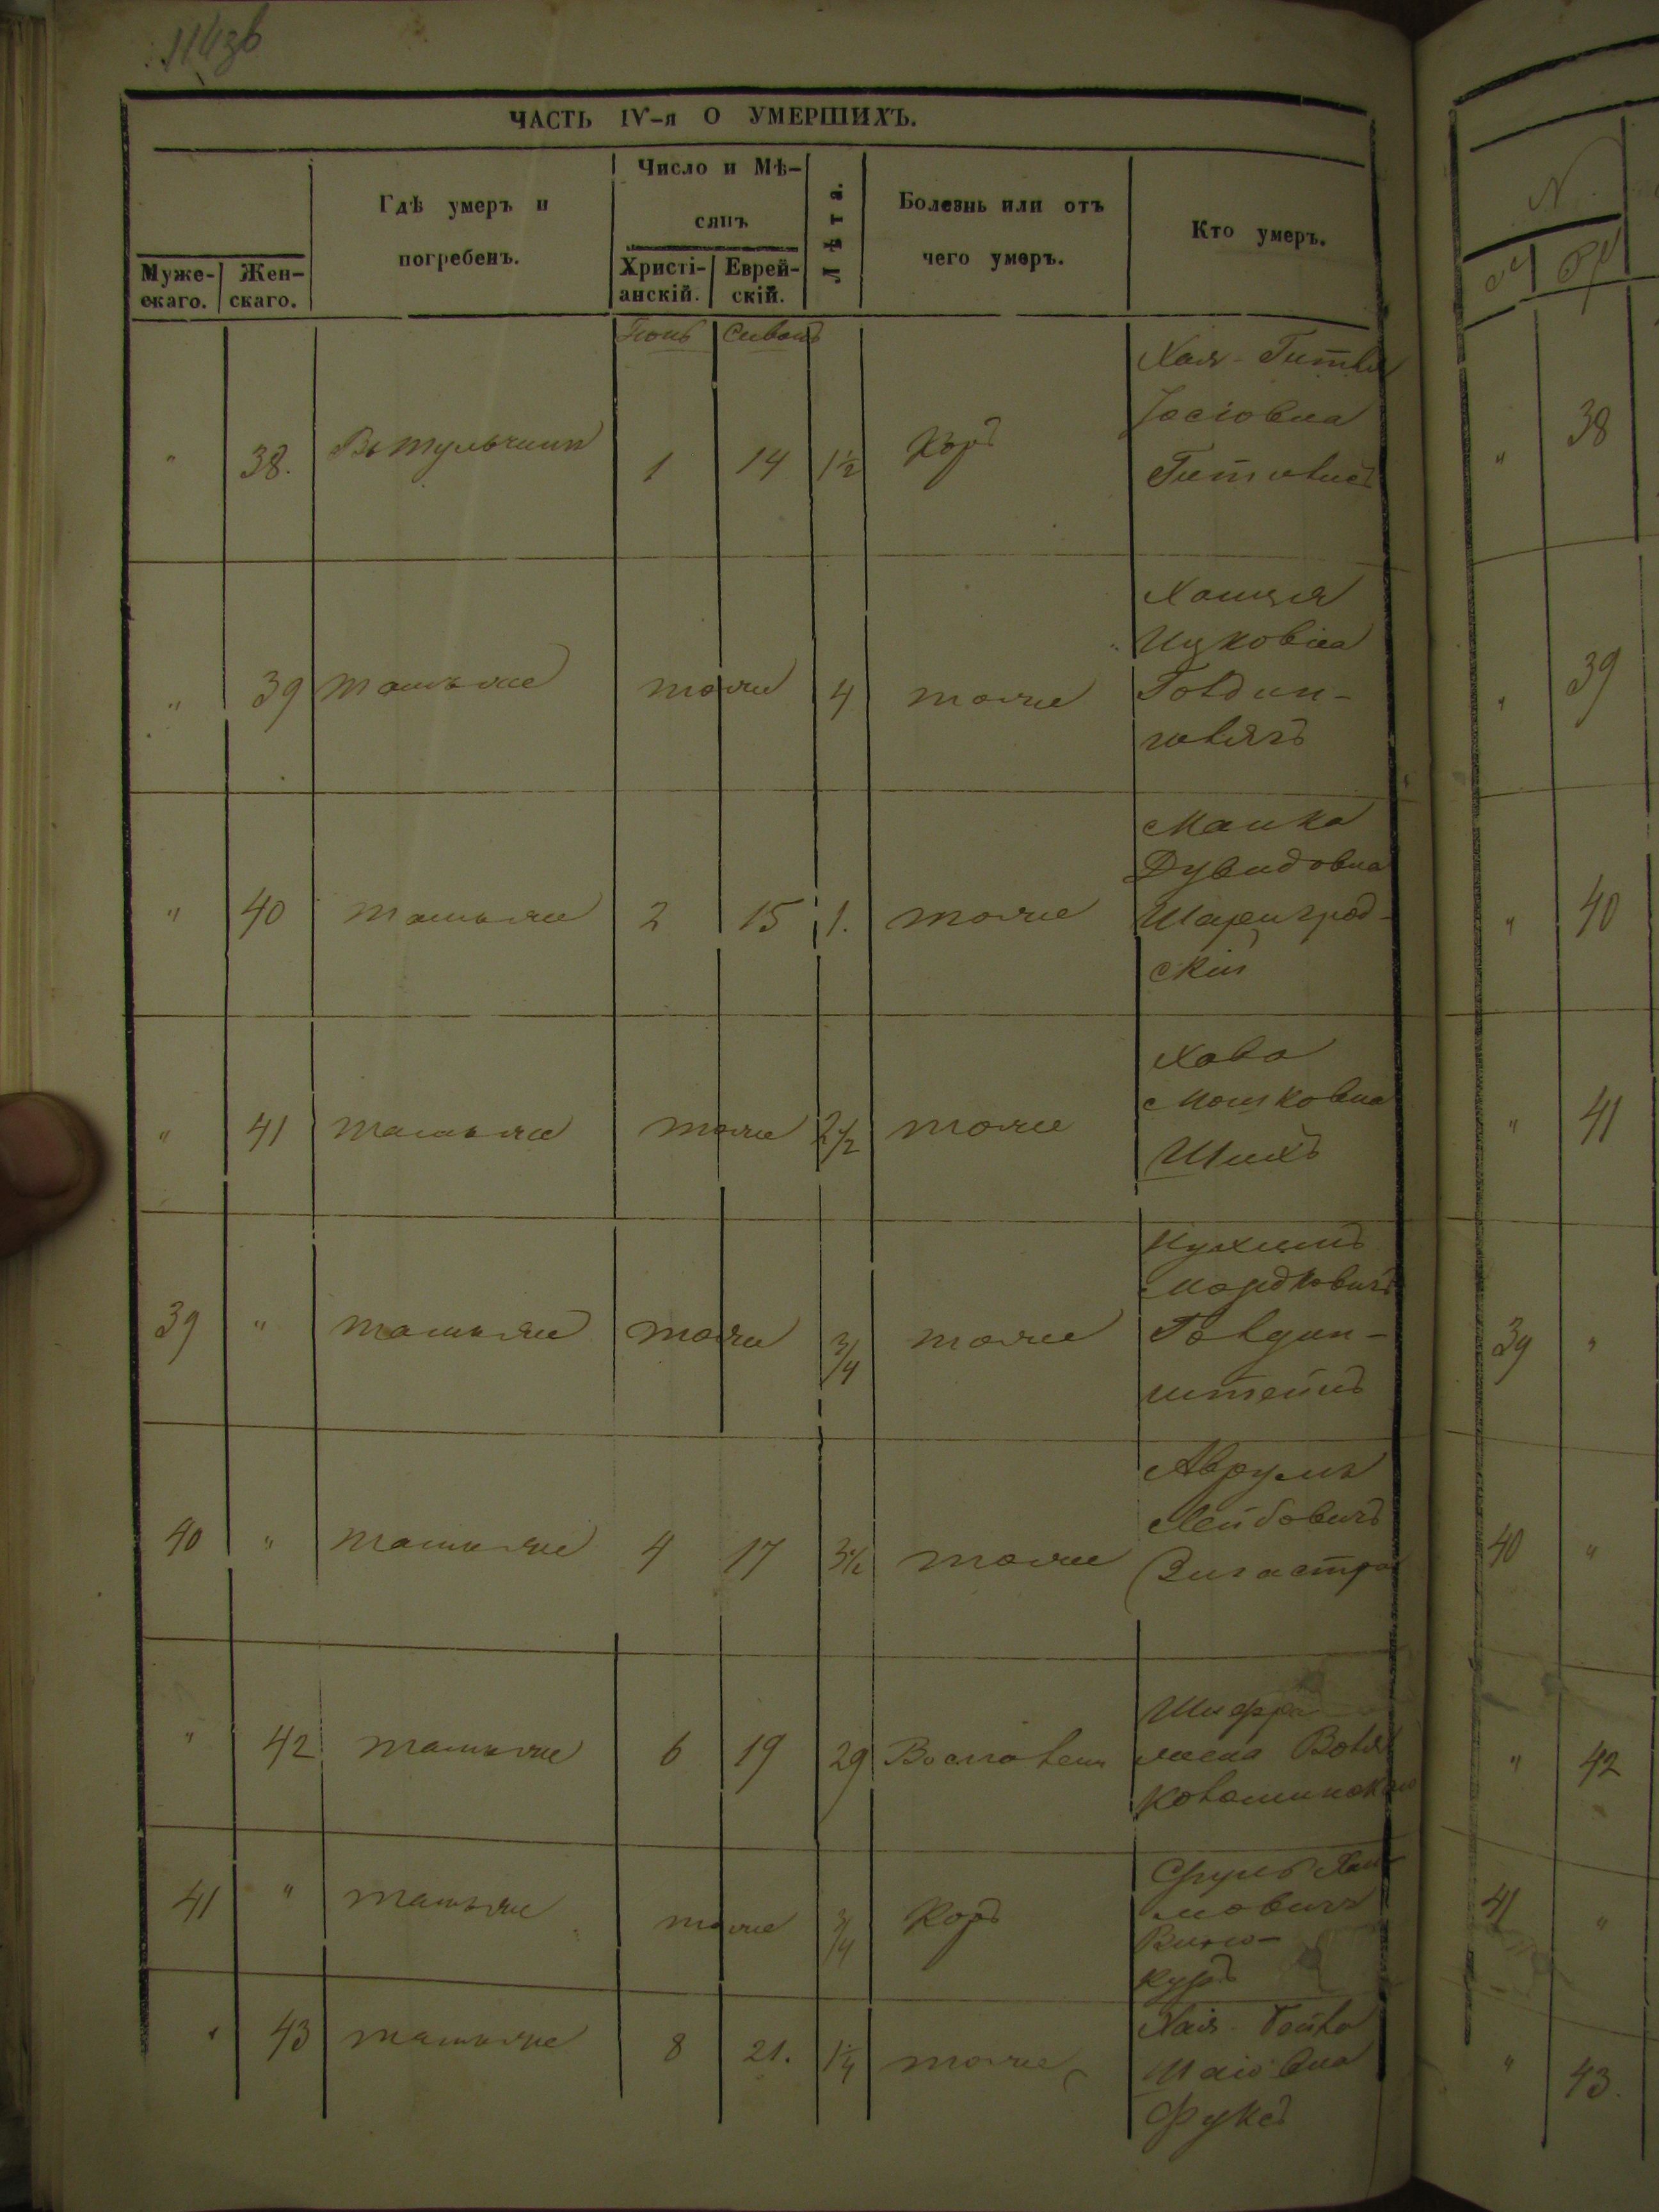 ЧАСТЬ IV-я О УМЕРШИХЪ.
Муже-
скаго.
Жен-
скаго.
Гдѣ умеръ и
погребенъ.
Число и Мѣ-
сяцъ
Христі-
анскій.
Еврей-
скій.
Лѣта.
Болезнь или отъ
чего умеръ.
Кто умеръ.
Іюнь Сиванъ
" 38. Въ Тульчинѣ 1 14 1½ Корь
Хая-Гитля
Іосіовна
" 39 тамъ же тоже 4 тоже
Ицковна
Голдин-
" 40 тамъ же 2 15 1. тоже
Манка
Дувидовна
Шаргигрод-
скій
" 41 тамъ же тоже 2½ тоже
Хава
Мошковна
39 " тамъ же тоже 3/4 тоже
Нухимъ
Мордковичъ
Голден-
штейнъ
40 " тамъ же 4 17 3½ тоже
Аврумъ
Лейбовичъ
" 42 тамъ же 6 19 29
Шифра
жена Вола
41 " тамъ же тоже 3/4 Корь
Сруль Хаи-
мовичъ
Вино-
куръ
" 43 тамъ же 8 21. 1¼ тоже
Хая-Гойта
Шаіовна
Фуксъ
N
" 38
" 39
" 40
" 41
39 "
40 "
" 42
41 "
" 43.